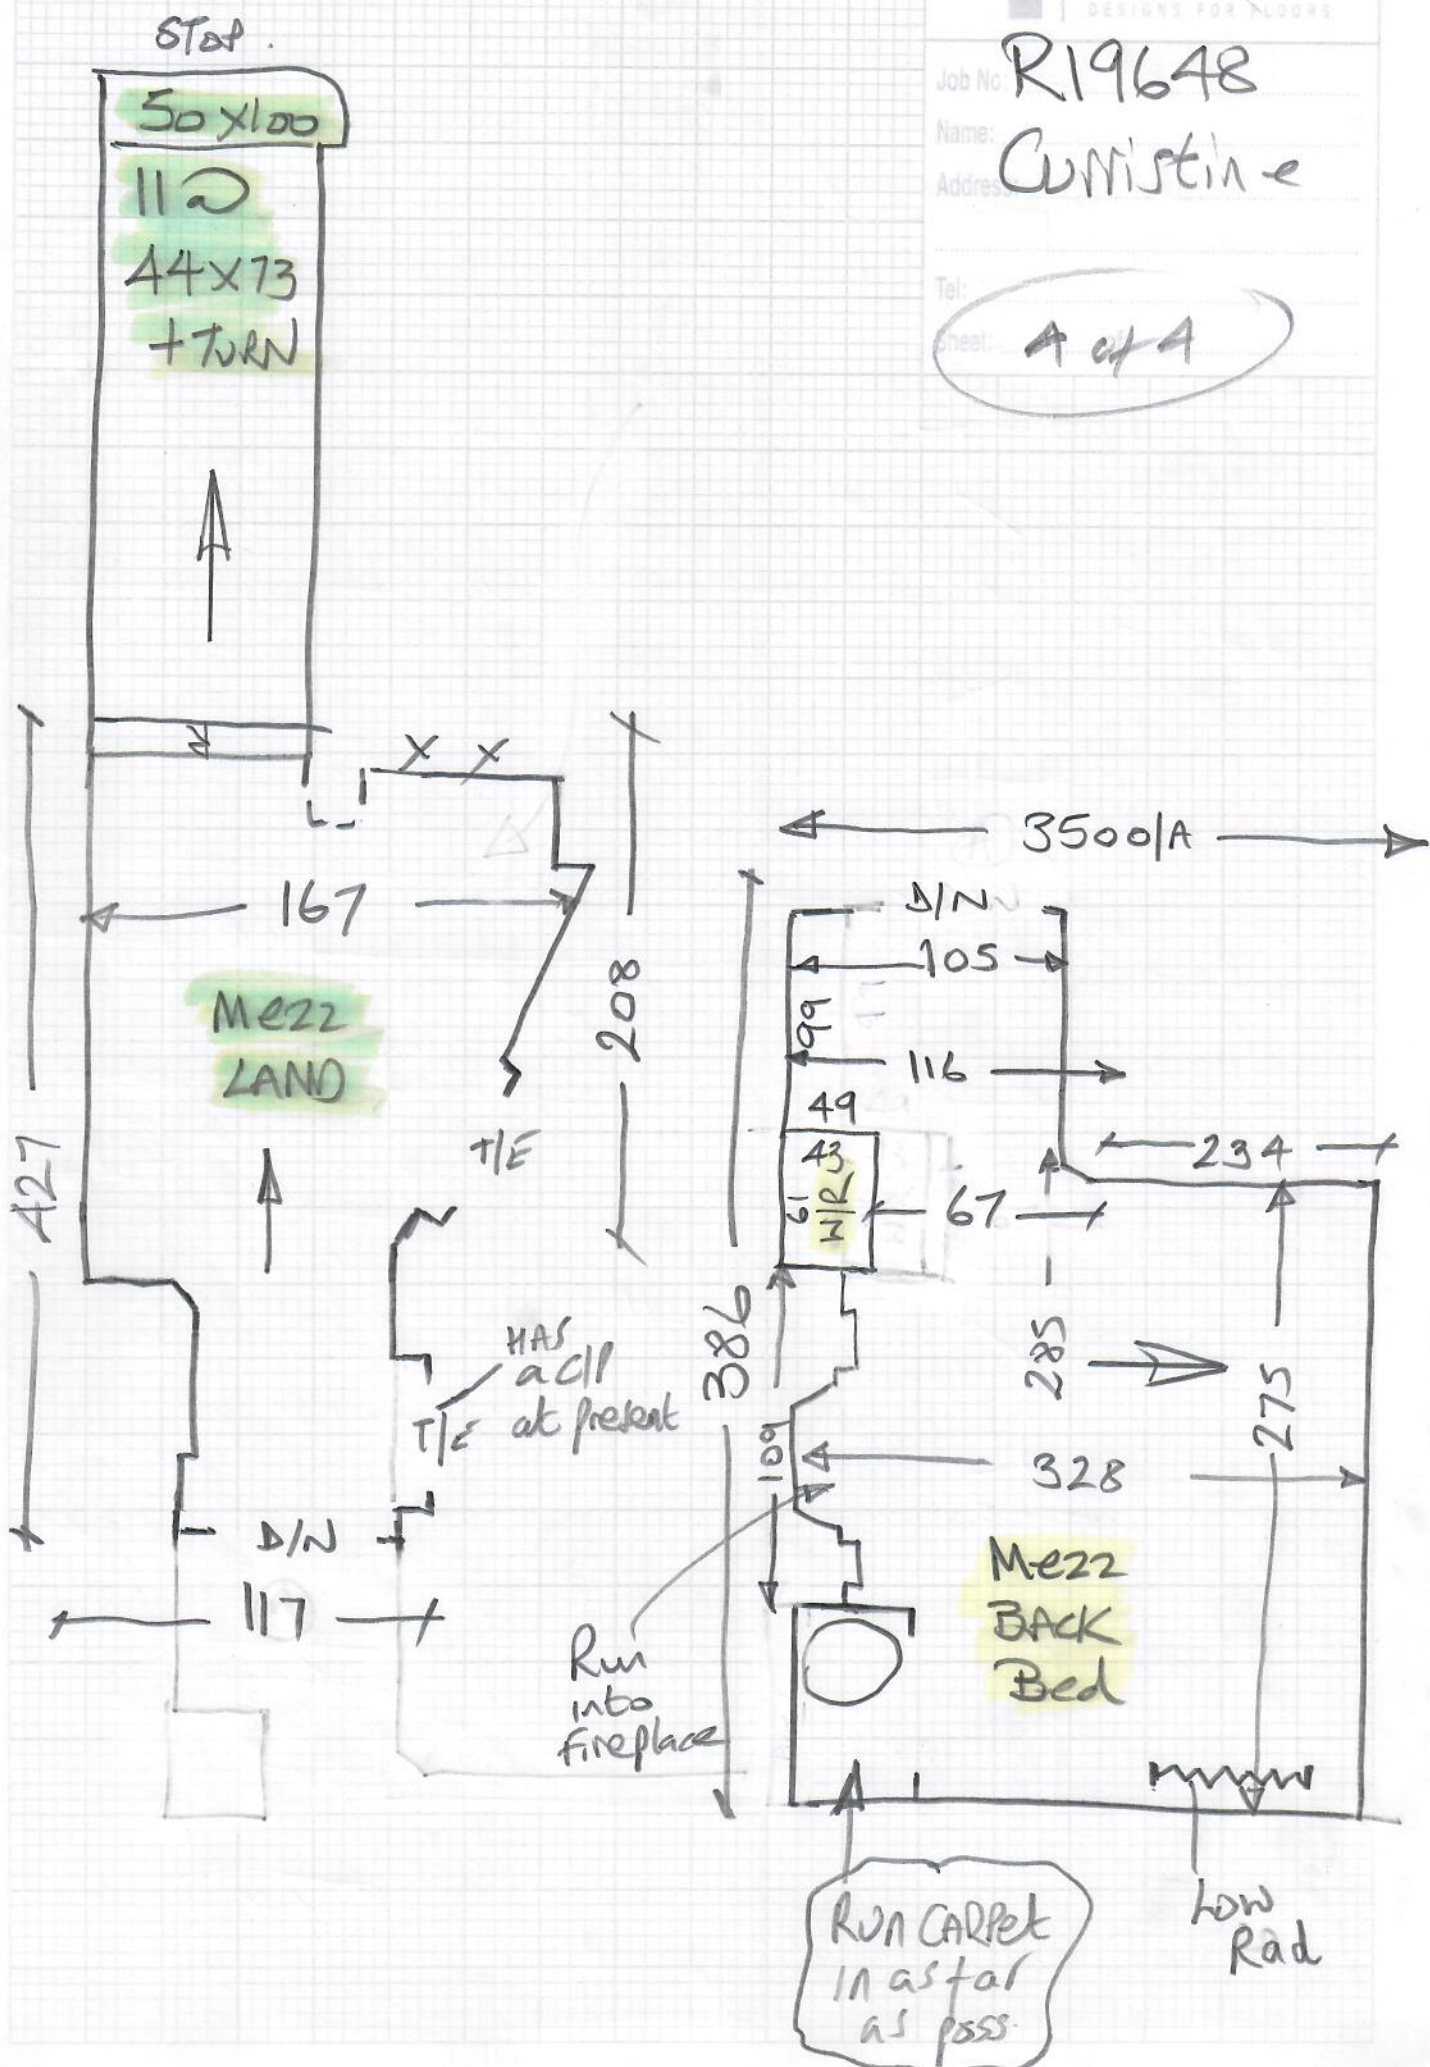 DESIGNS FOR FLOORS
Job No: R19648
Name: Curristine
Address:
Tel:
Sheet: 4 of 4
STOP.
50 x 100
11
44 x 73
+ TURN
N
X X
167
208
Mezz
LAND
427
T/E
HAS
a C/P
at present
T/E
D/N
117
3500/A
D/N
105
99
116
49
43
61
W/R
67
234
386
285
275
109
328
Mezz
BACK
Bed
Run
into
fireplace
RUN CARPet
in as far
as poss
Low
Rad